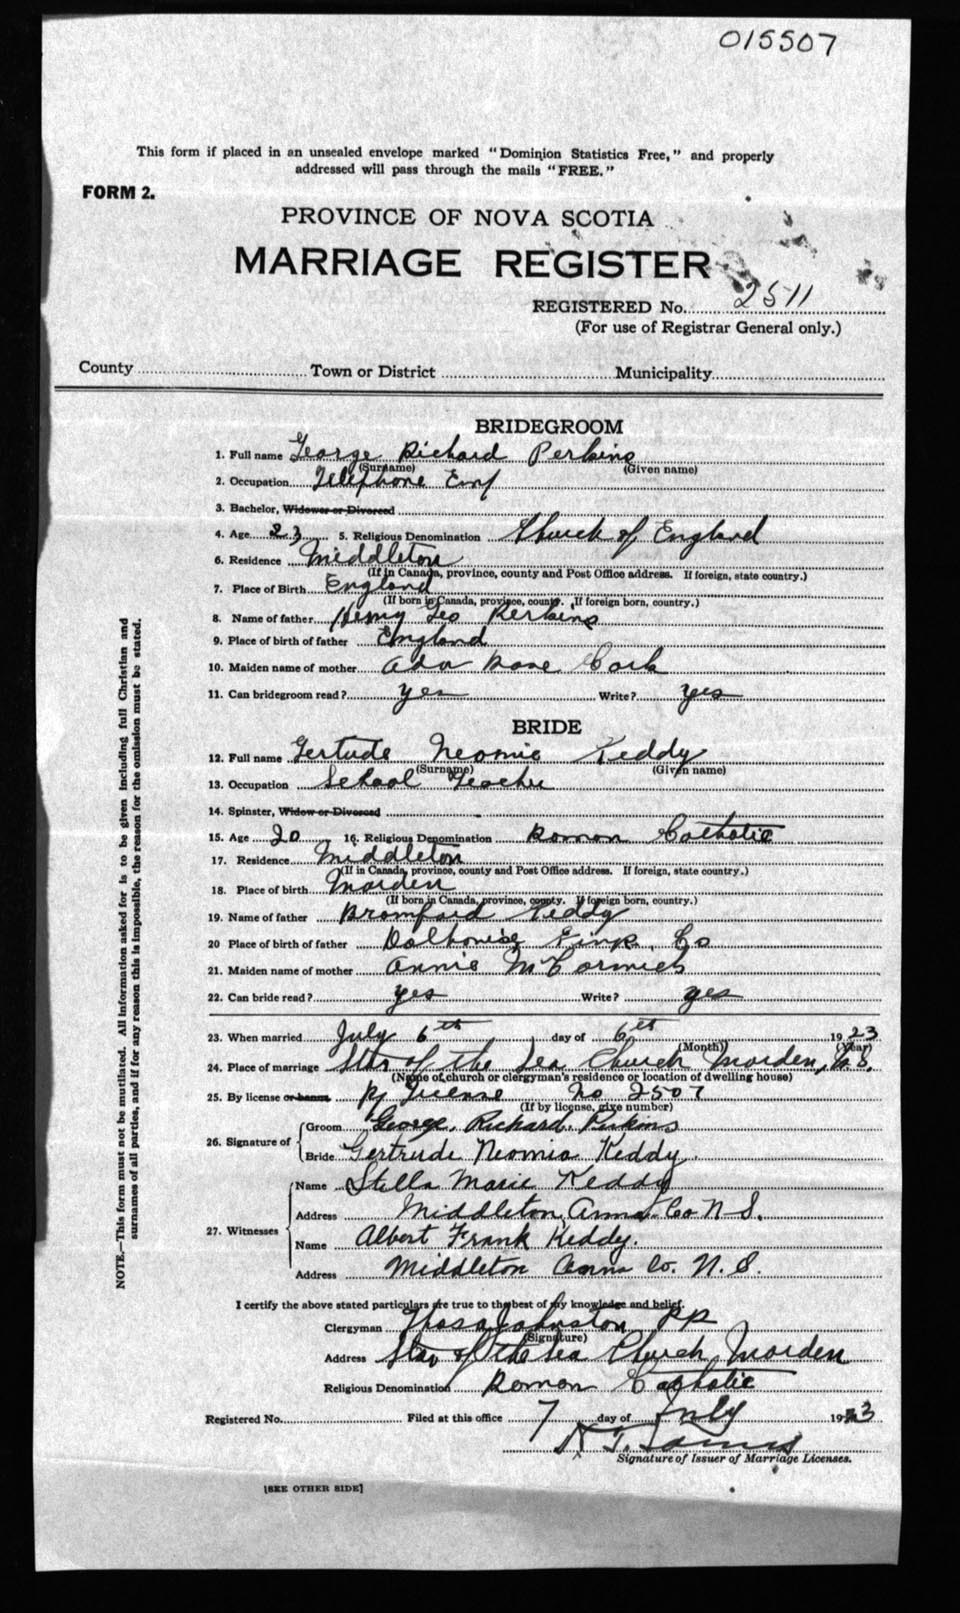 015507
This form if placed in an unsealed envelope marked "Dominion Statistics Free," and properly
addressed will pass through the mails "FREE."
FORM 2.
PROVINCE OF NOVA SCOTIA
MARRIAGE REGISTER
REGISTERED No. 2511
(For use of Registrar General only.)
County Town or District Municipality
BRIDEGROOM
1. Full name George Richard Perkins
(Surname) (Given name)
2. Occupation Telephone Emp
3. Bachelor, Widower or Divorced
4. Age 23 5. Religious Denomination Church of England
6. Residence Middleton
(If in Canada, province, county and Post Office address. If foreign, state country.)
7. Place of Birth England
(If born in Canada, province, county. If foreign born, country.)
8. Name of father Henry Geo Perkins
9. Place of birth of father England
10. Maiden name of mother Ada
11. Can bridegroom read? yes Write? yes
BRIDE
12. Full name Gertude Neomie Keddy
(Surname) (Given name)
13. Occupation School Teacher
14. Spinster, Widow or Divorced
15. Age 20 16. Religious Denomination Roman Catholic
17. Residence Middleton
(If in Canada, province, county and Post Office address. If foreign, state country.)
18. Place of birth Morden
(If born in Canada, province, county. If foreign born, country.)
19. Name of father Keddy
20 Place of birth of father Dalhousie Co
21. Maiden name of mother Annie McCormick
22. Can bride read? yes Write? yes
23. When married July 6th day of 6th 1923
(Month) (Year)
24. Place of marriage Star of the Sea Church Morden, N.S.
(Name of church or clergyman's residence or location of dwelling house)
25. By license or banns By License No 2507
(If by license, give number)
26. Signature of Groom George Richard Perkins
Bride Gertrude Neomia Keddy
27. Witnesses Name Stella Marie Keddy
Address Middleton Anna. Co N S.
Name Albert Frank Keddy.
Address Middleton Anna Co. N. S.
I certify the above stated particulars are true to the best of my knowledge and belief.
Clergyman Thos Johnston PP
(Signature)
Address Star of the Sea Church Morden
Religious Denomination Roman Catholic
Registered No. Filed at this office 7 day of July 1923
Signature of Issuer of Marriage Licenses.
[SEE OTHER SIDE]
NOTE.—This form must not be mutilated. All information asked for is to be given including full Christian and
surnames of all parties, and if for any reason this is impossible, the reason for the omission must be stated.